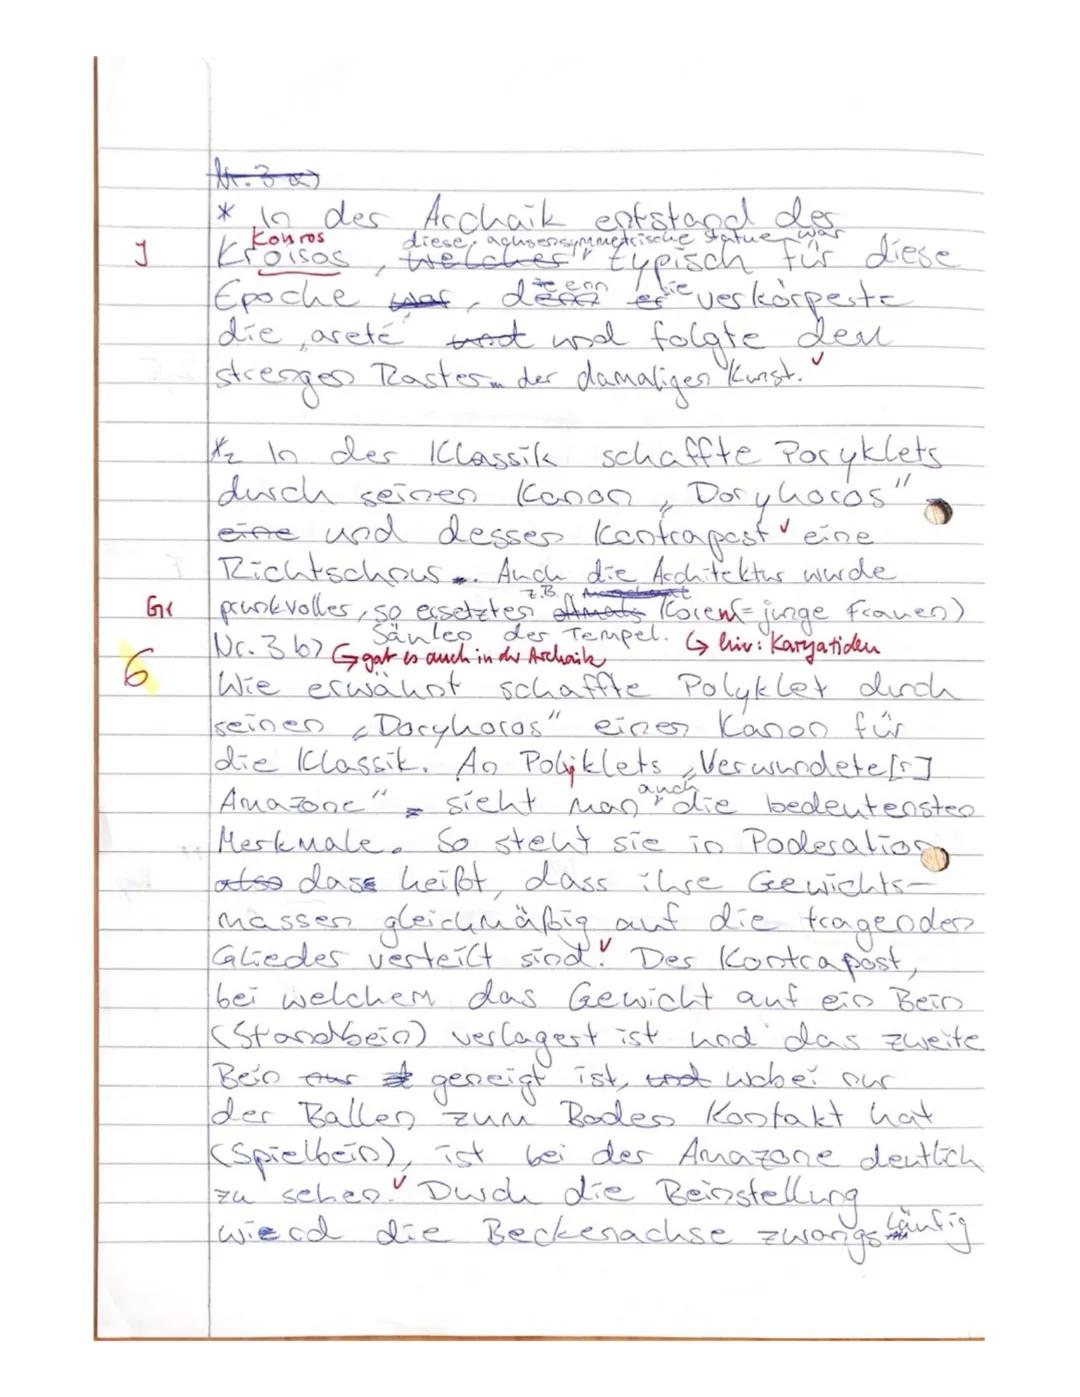 Nr. 3 a)
* In der Archaik entstand der
Kouros diese, achsensymmetrische Statue war
J Kroisos, welcher typisch für diese
Epoche war, denn er sie verkörperte
die ‚areté' und und folgte dem
strengen Raster der damaligen Kunst. ✓
*2 In der Klassik schaffte Poryklets
durch seinen Kanon „Doryhoros"
eine und dessen Kontrapost ✓ eine
Richtschnur. Auch die Architektur wurde
z.B.
Gr prunkvoller, so ersetzten oftmals Koren (= junge Frauen)
Säulen der Tempel. ↳ hier: Karyatiden
Nr. 3 b) ↳ gab es auch in der Archaik
6 Wie erwähnt schaffte Polyklet durch
seinen „Doryhoros" einen Kanon für
die Klassik. An Polyklets „Verwundete[r]
auch
Amazone" sieht man die bedeutensten
Merkmale. So steht sie in Poderation
also dass heißt, dass ihre Gewichts-
massen gleichmäßig auf die tragenden
Glieder verteilt sind. ✓ Der Kontrapost,
bei welchem das Gewicht auf ein Bein
(Standbein) verlagert ist und das zweite
Bein nur geneigt ist, und wobei nur
der Ballen zum Boden Kontakt hat
(Spielbein), ist bei der Amazone deutlich
zu sehen. ✓ Durch die Beinstellung
wierd die Beckenachse zwangsläufig